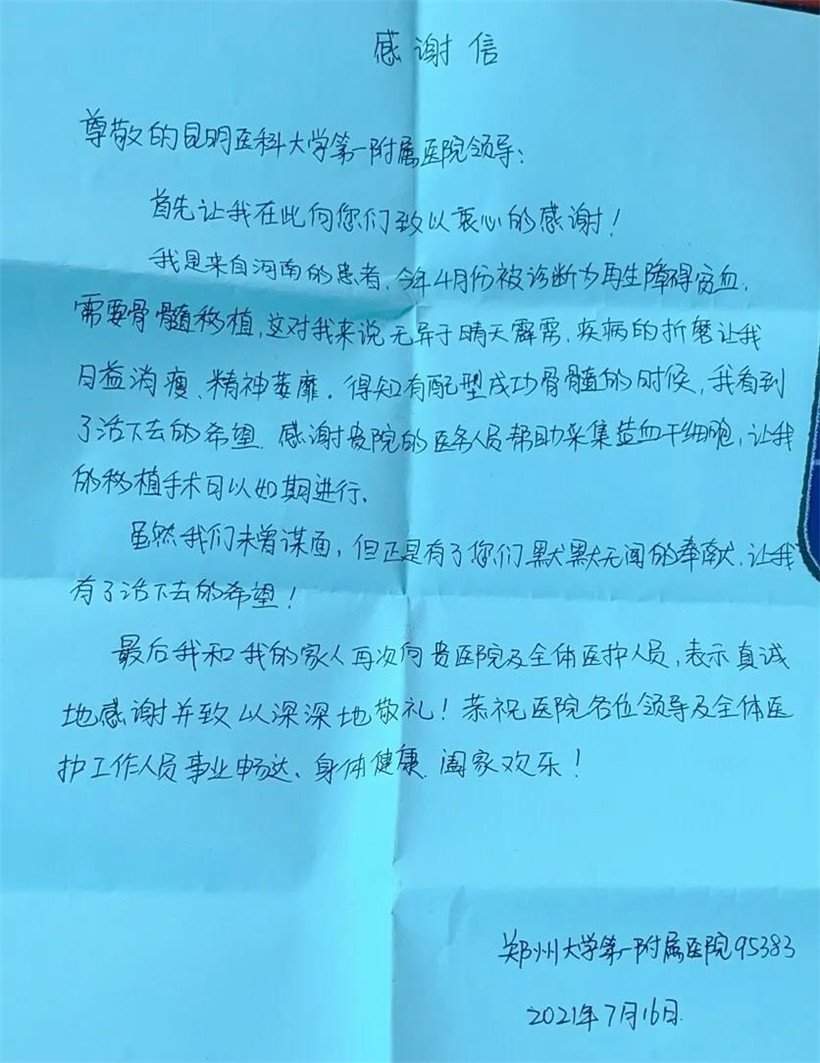 感谢信
尊敬的昆明医科大学第一附属医院领导：
首先让我在此向您们致以衷心的感谢！
我是来自河南的患者，今年4月份被诊断为再生障碍贫血，
需要骨髓移植，这对我来说无异于晴天霹雳，疾病的折磨让我
日益消瘦、精神萎靡。得知有配型成功骨髓的时候，我看到
了活下去的希望。感谢贵院的医务人员帮助采集造血干细胞，让我
的移植手术可以如期进行。
虽然我们未曾谋面，但正是有了您们默默无闻的奉献，让我
有了活下去的希望！
最后我和我的家人再次向贵医院及全体医护人员，表示真诚
地感谢并致以深深地敬礼！恭祝医院各位领导及全体医
护工作人员事业畅达、身体健康、阖家欢乐！
郑州大学第一附属医院95383
2021年7月16日